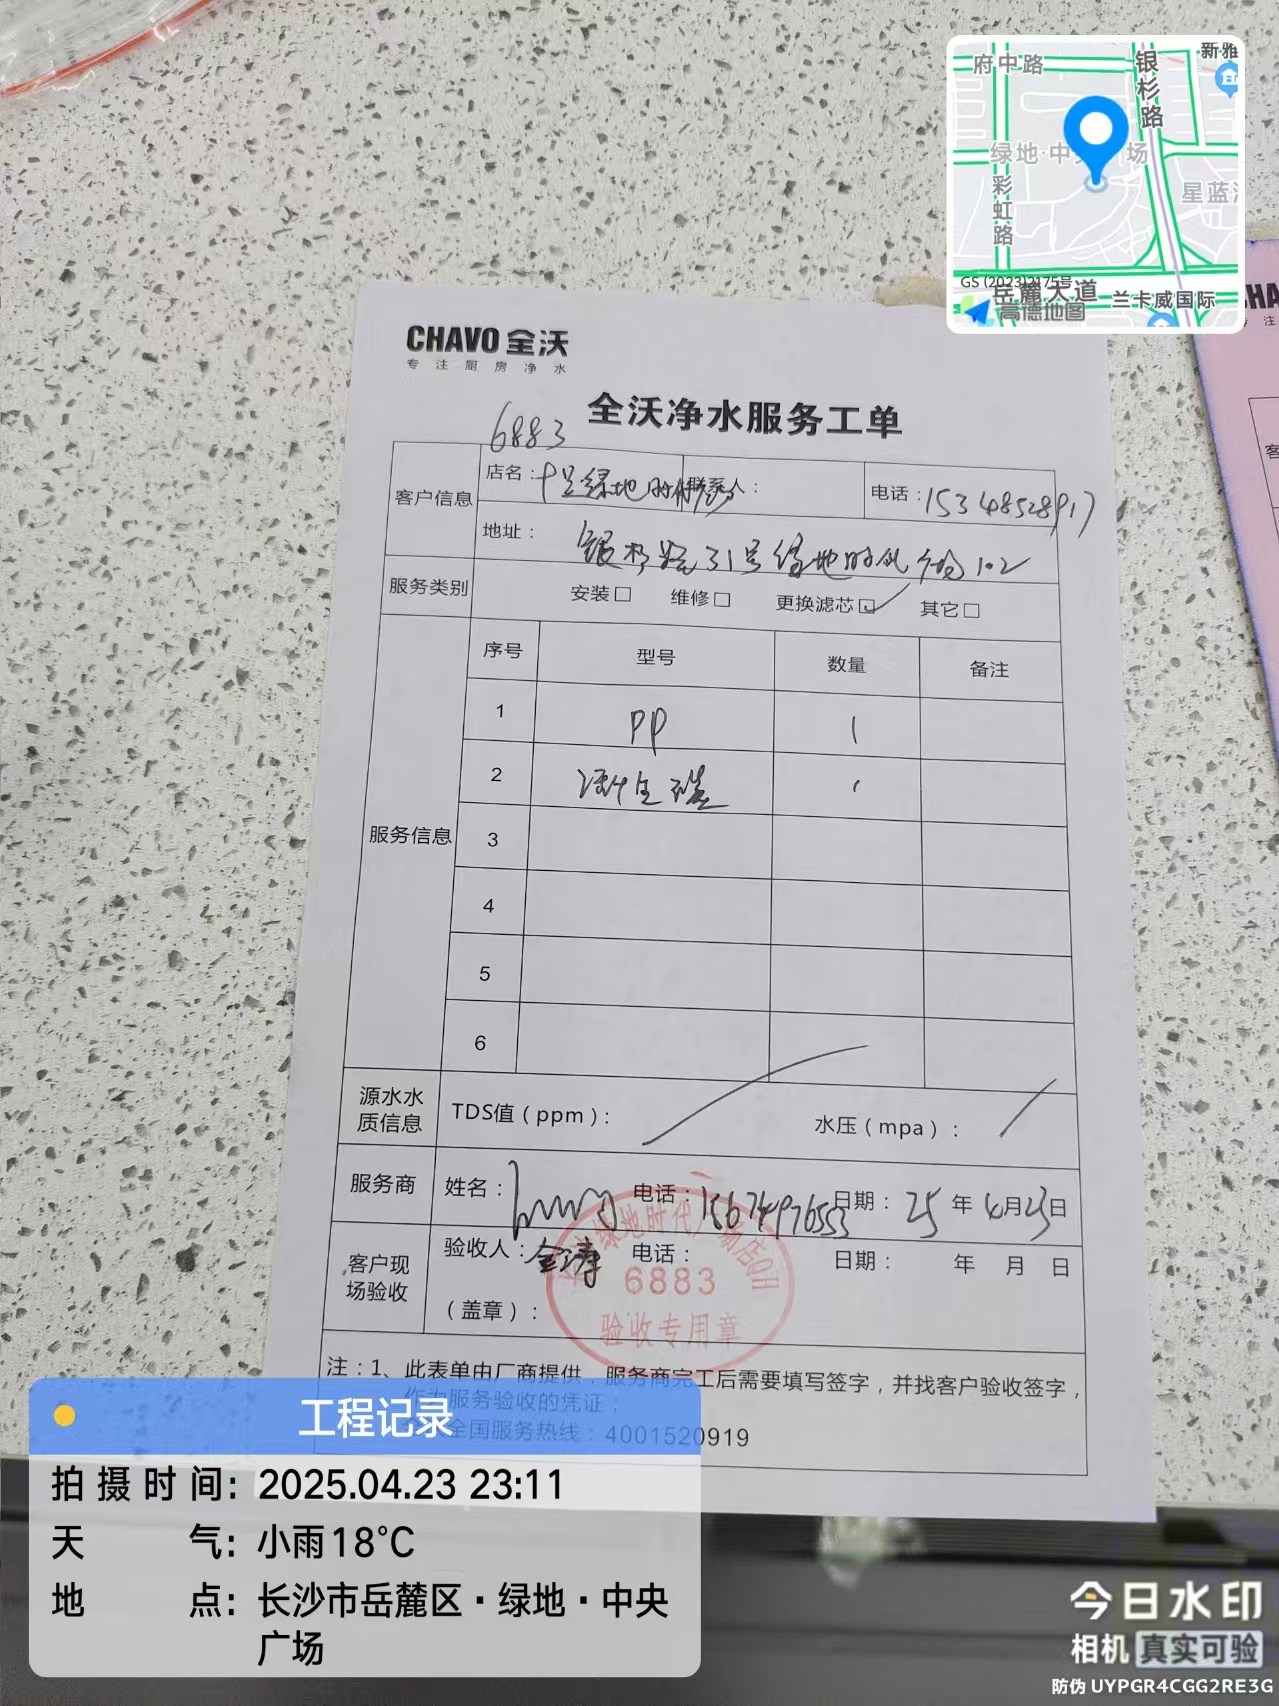 府中路
银杉路
新雅
绿地·中
场
彩虹路
星蓝
GS (2023)2175号
岳麓大道
兰卡威国际
高德地图
CHAVO 全沃
专注厨房净水
全沃净水服务工单
6883
客户信息
店名：
联系人：
电话：15348528917
地址：银杉路31号绿地时代广场102
服务类别
安装□ 维修□ 更换滤芯☑ 其它□
服务信息
序号 型号 数量 备注
1 PP 1
2 活性碳 1
3
4
5
6
源水水质信息
TDS值（ppm）：
水压（mpa）：
服务商
姓名：
电话：15674976553
日期：25年4月23日
客户现场验收
验收人：
电话：
日期： 年 月 日
（盖章）：
绿地时代广场店
6883
验收专用章
注：1、此表单由厂商提供，服务商完工后需要填写签字，并找客户验收签字，
作为服务验收的凭证，
全国服务热线：4001520919
工程记录
拍摄时间：2025.04.23 23:11
天气：小雨18℃
地点：长沙市岳麓区·绿地·中央
广场
今日水印
相机 真实可验
防伪 UYPGR4CGG2RE3G